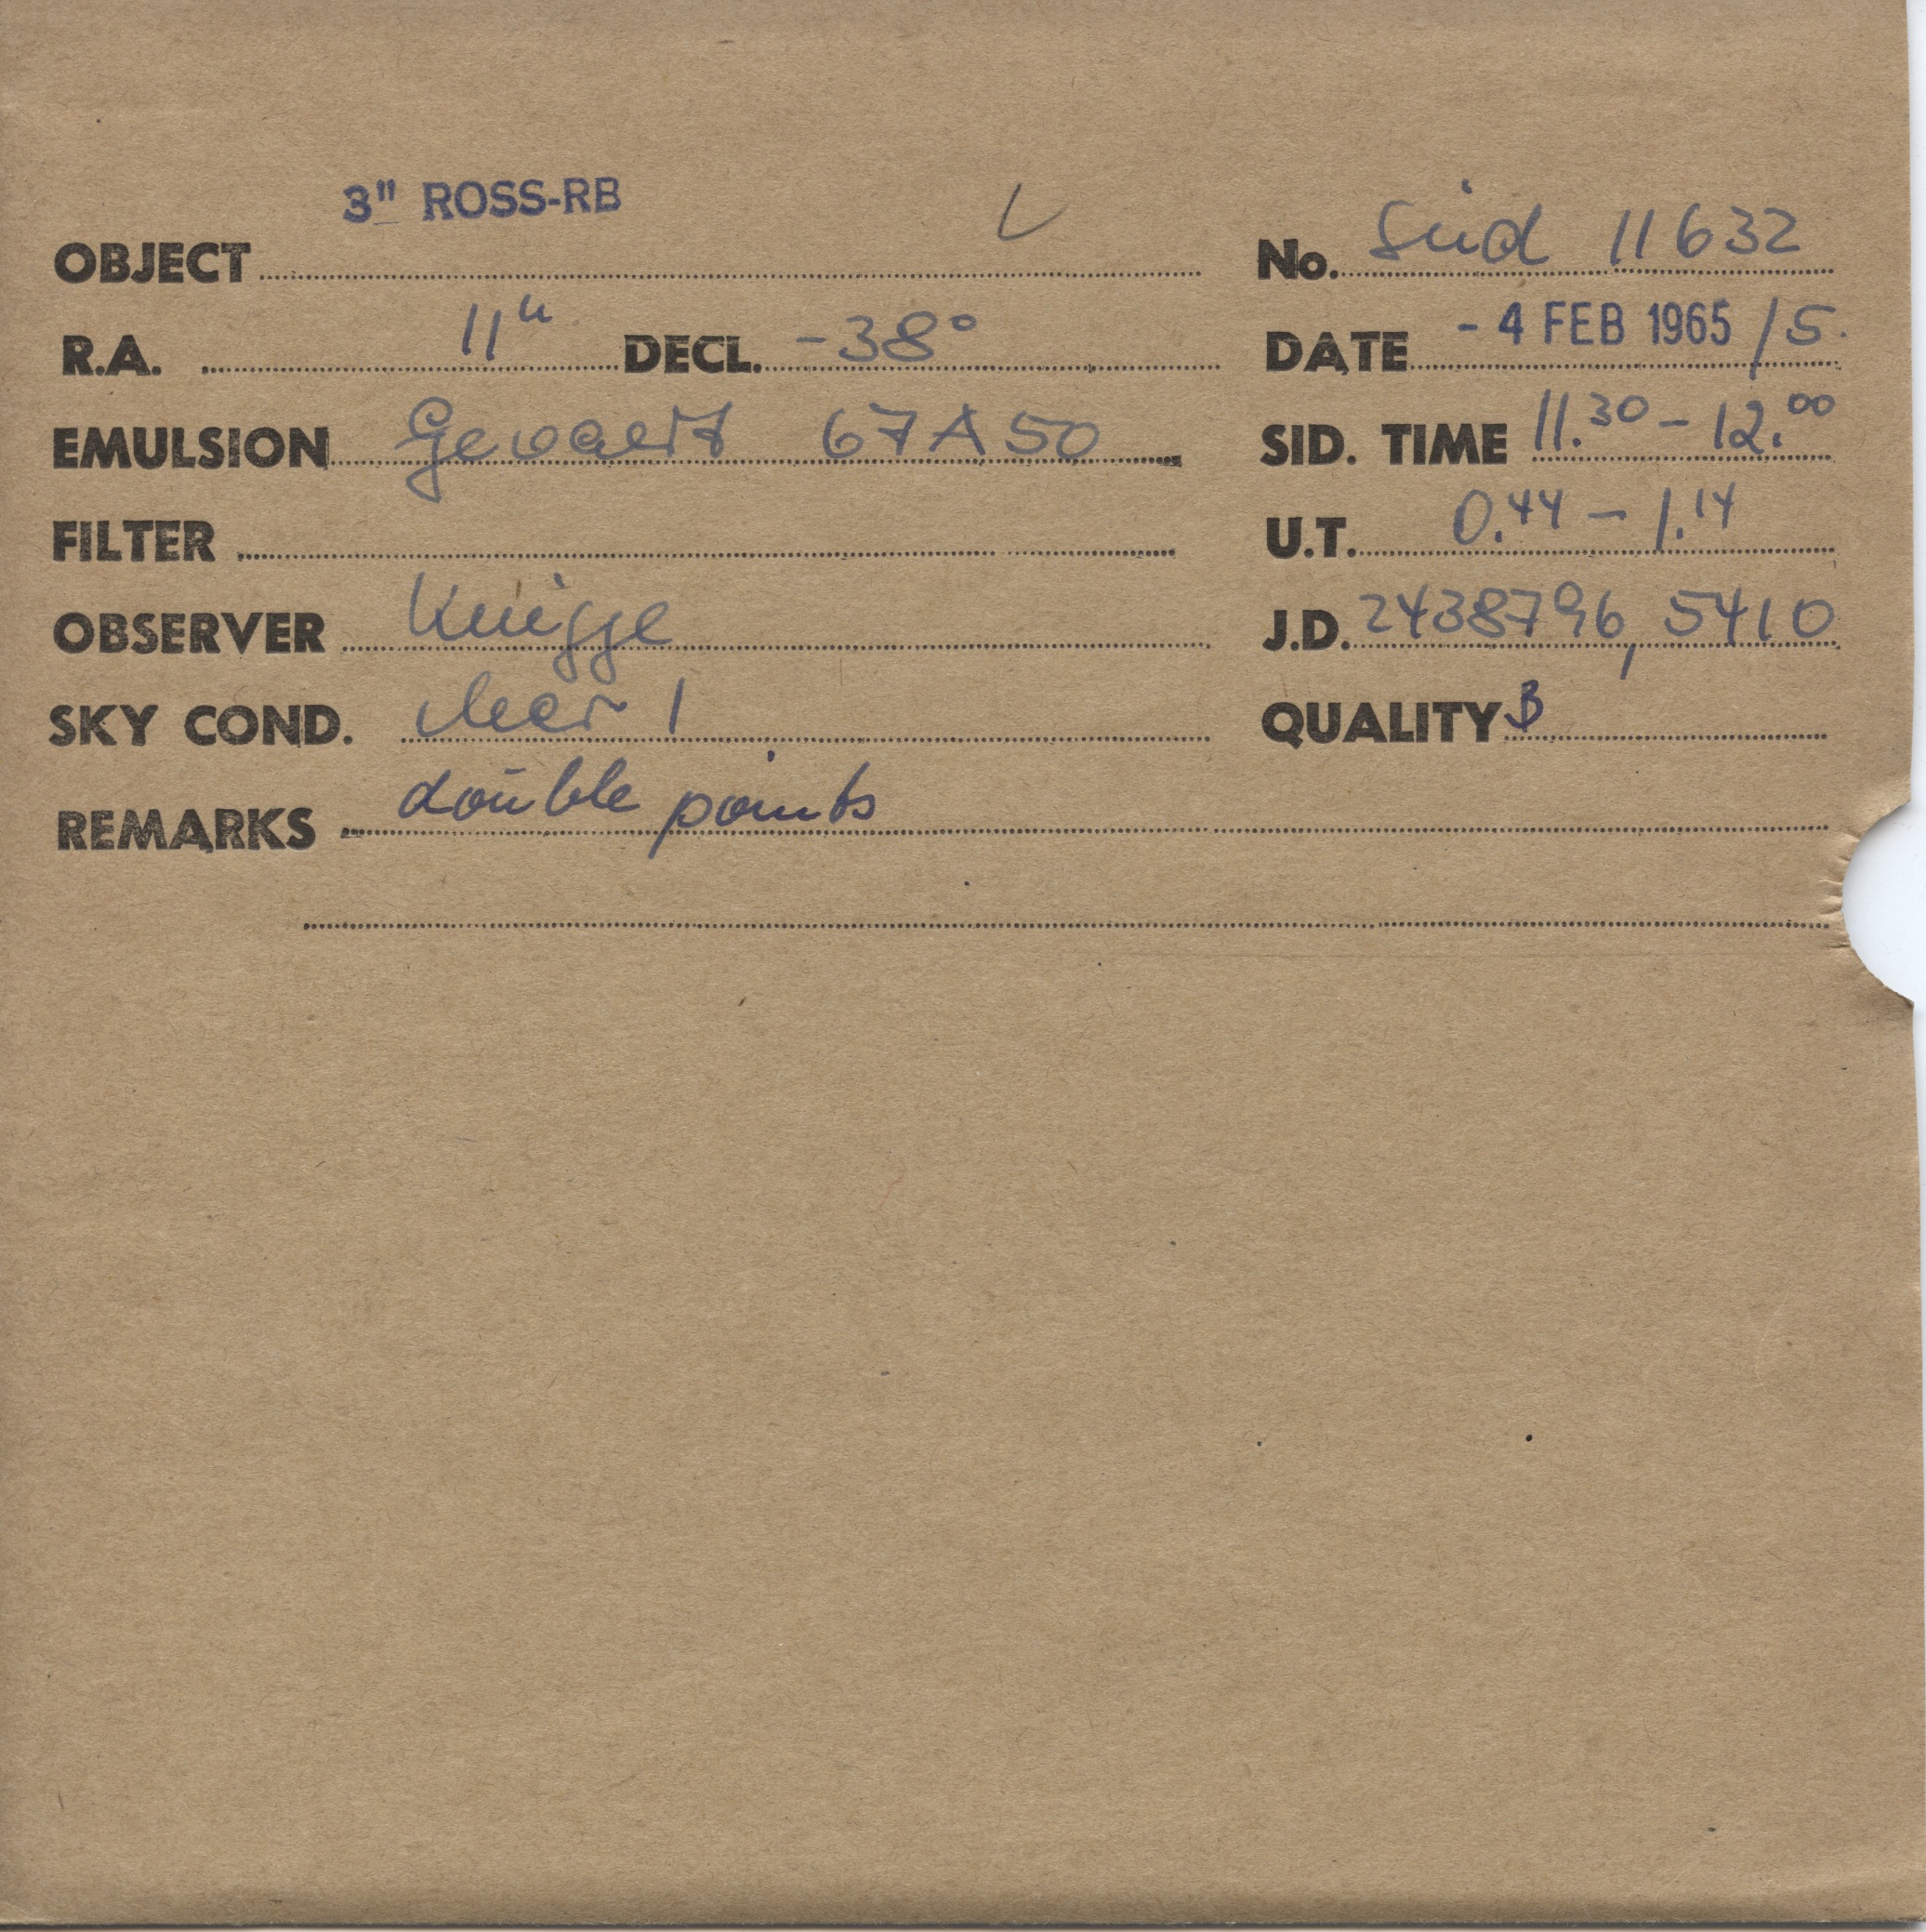 3" ROSS-RB
OBJECT No. Süd 11632
R.A. 11h DECL. -38° DATE - 4 FEB 1965 /5.
EMULSION Gevaert 67A50 SID. TIME 11.30 - 12.00
FILTER U.T. 0.44 - 1.14
OBSERVER Knigge J.D. 2438796,5410
SKY COND. clear 1 QUALITY B
REMARKS double points